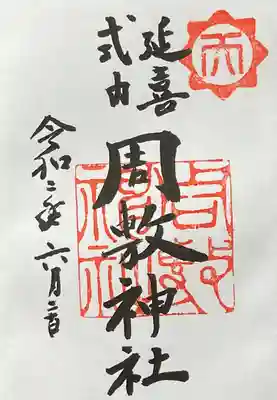 延喜
式内
周敷神社
令和二年 六月